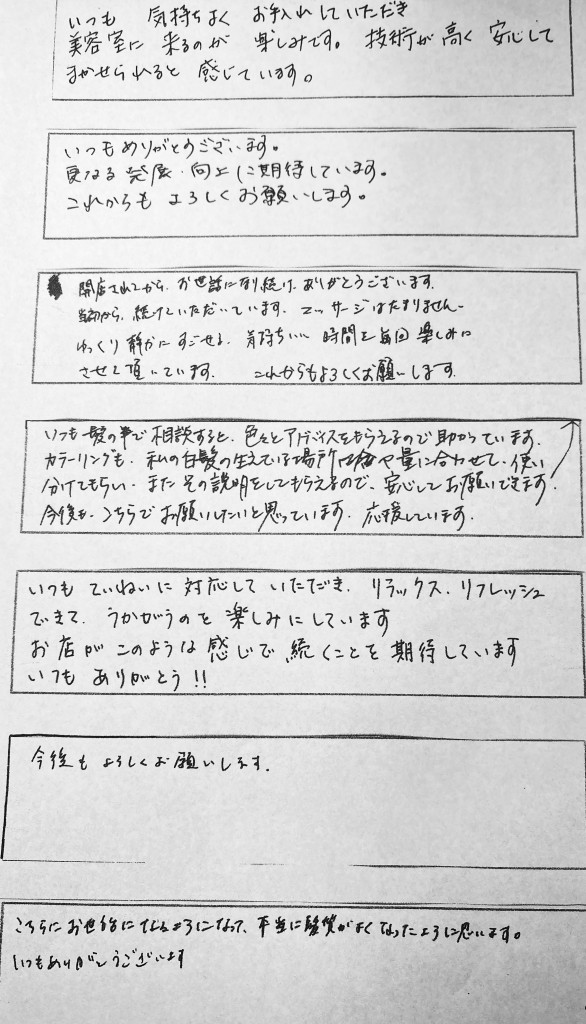 いつも 気持ちよく お手入れしていただき
美容室に 来るのが 楽しみです。 技術が高く 安心して
まかせられると 感じています。
いつもありがとうございます。
更なる 発展・向上に期待しています。
これからも よろしくお願いします。
開店されてから、お世話になり続け、ありがとうございます。
当初から、続けていただいています。マッサージはたまりません。
ゆっくり 静かに すごせる、気持ちいい 時間を 毎回 楽しみに
させて頂いています。 これからもよろしくお願いします。
いつも髪の事で相談すると、色々とアドバイスをもらえるので助かっています。
カラーリングも、私の白髪の生えている場所や量に合わせて、使い
分けてもらい、またその説明をしてもらえるので、安心してお願いできます。
今後も、こちらでお願いしたいと思っています。応援しています。
いつも ていねいに 対応して いただき、 リラックス、リフレッシュ
できて、 うかがうのを 楽しみにしています
お店が このような 感じで 続くことを 期待しています
いつも ありがとう!!
今後も よろしくお願いします。
こちらにお世話になるようになって、本当に髪質がよくなったように思います。
いつもありがとうございます